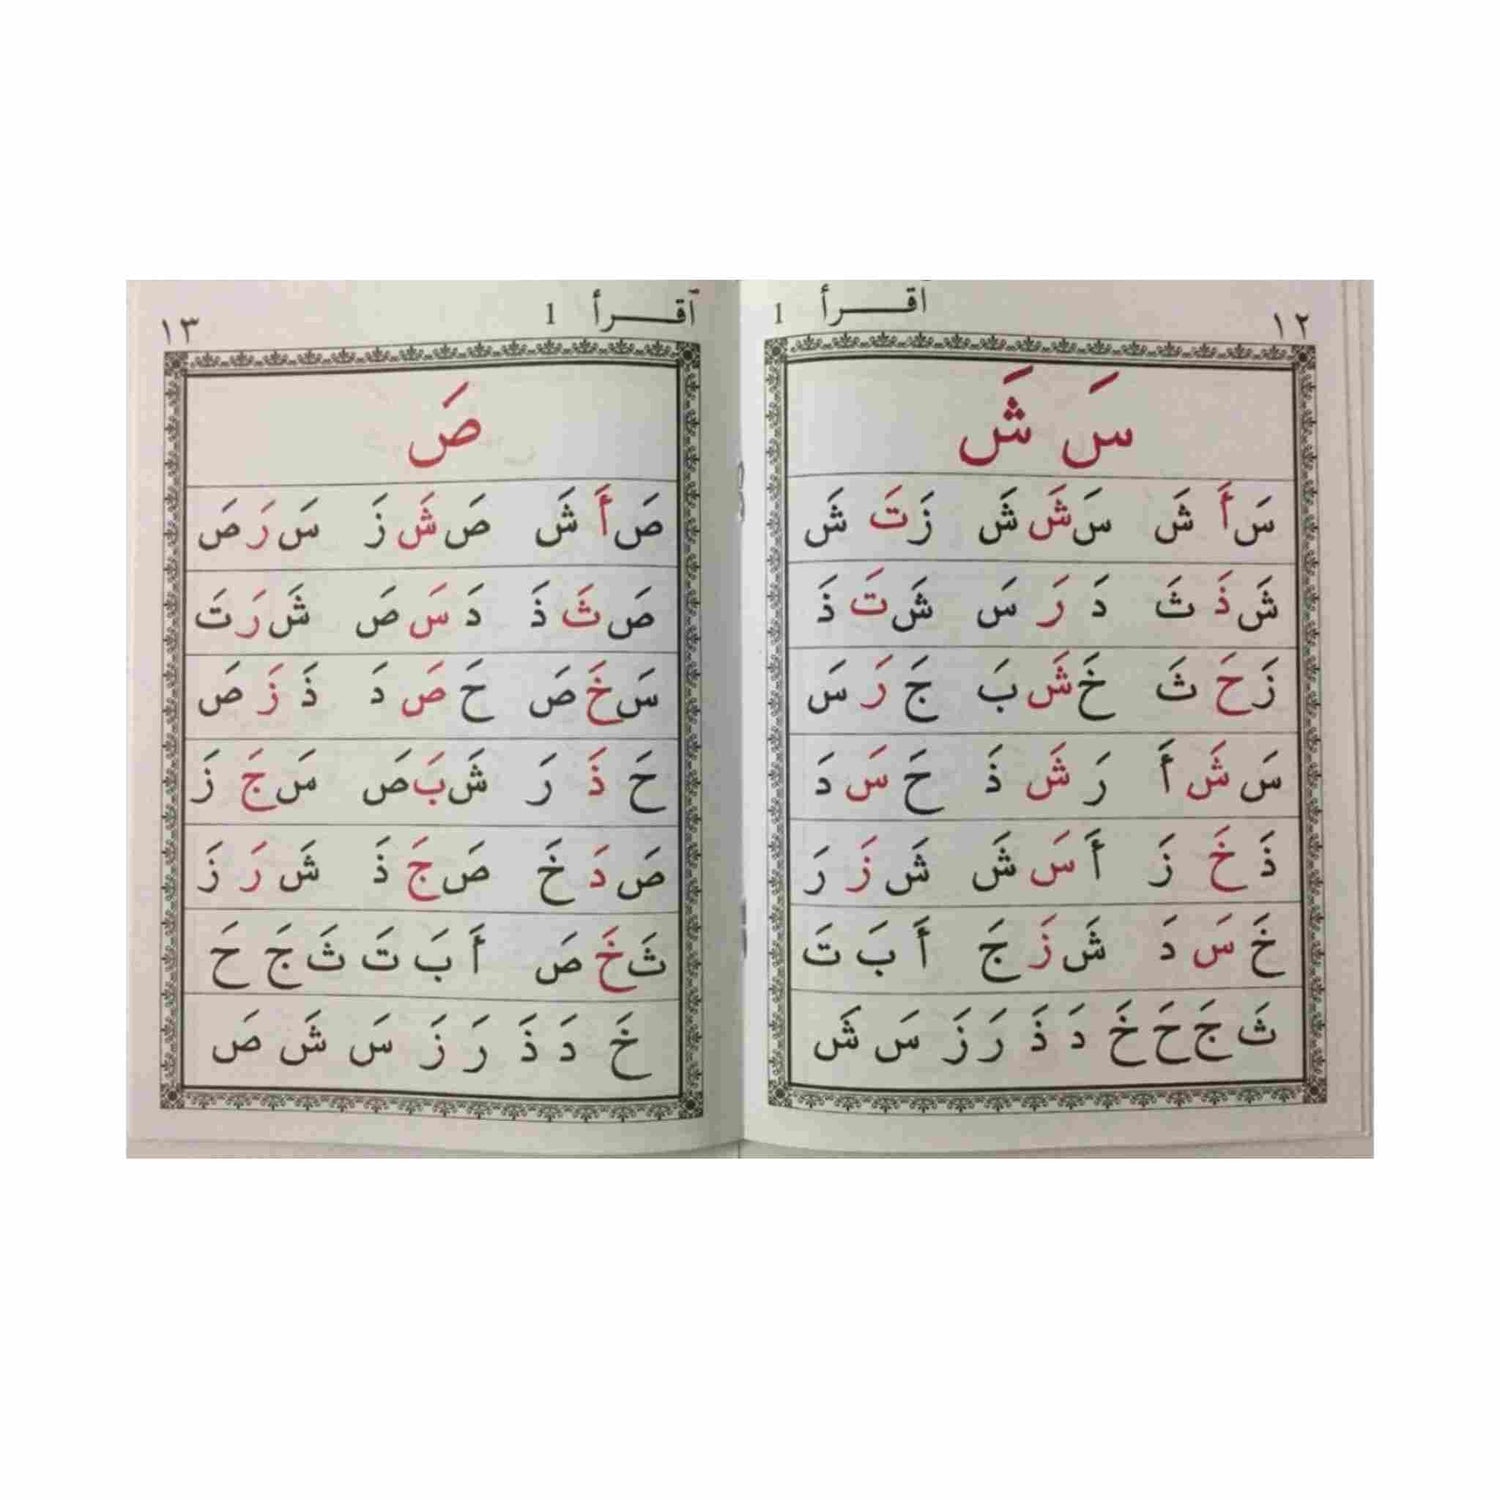 ١٢
اقـــرأ 1
سَ شَ
سَ أَ شَ سَ شَ شَ زَ تَ شَ
شَ ذَ ثَ دَ رَ سَ شَ تَ ذَ
زَ حَ ثَ خَ شَ بَ جَ رَ سَ
سَ شَ أَ رَ شَ ذَ حَ سَ دَ
ذَ خَ زَ أَ سَ شَ شَ زَ رَ
خَ سَ دَ شَ زَ جَ أَ بَ تَ
ثَ جَ حَ خَ دَ ذَ رَ زَ سَ شَ
أقـــرأ 1
١٣
صَ
صَ أَ شَ صَ شَ زَ سَ رَ صَ
صَ ثَ ذَ دَ سَ صَ شَ رَ تَ
سَ خَ صَ حَ صَ دَ ذَ زَ صَ
حَ ذَ رَ شَ بَ صَ سَ جَ زَ
صَ دَ خَ صَ جَ ذَ شَ رَ زَ
ثَ خَ صَ أَ بَ تَ ثَ جَ حَ
خَ دَ ذَ رَ زَ سَ شَ صَ